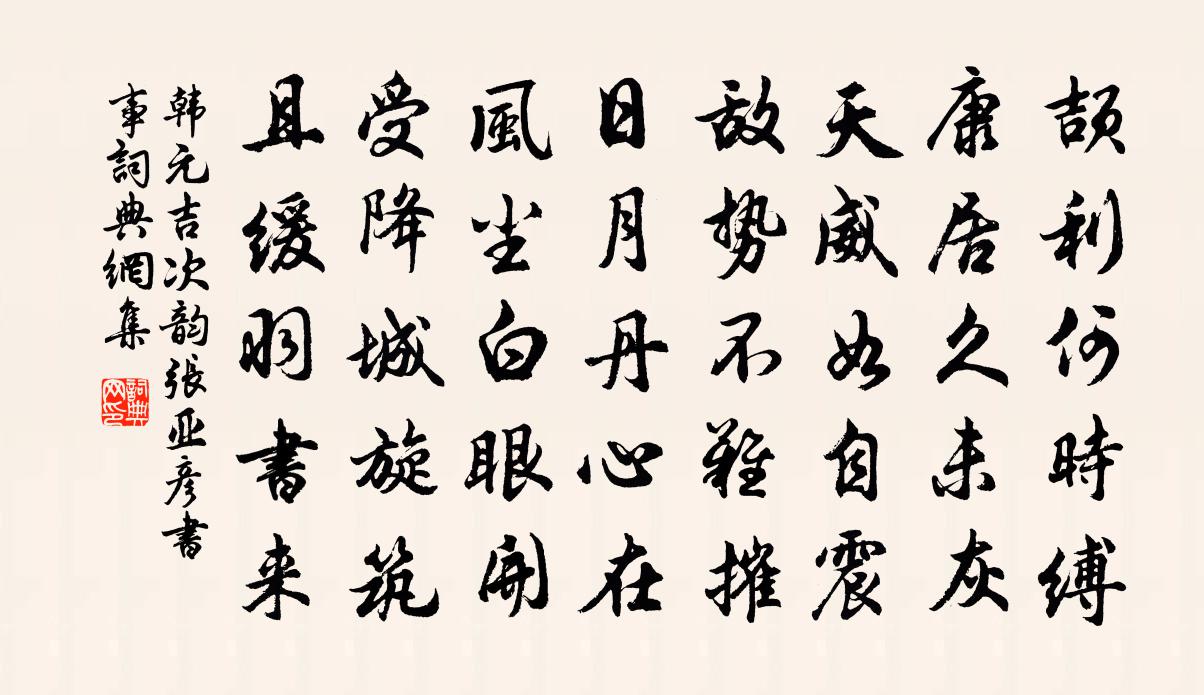 頡利何時縛
康居久未灰
天威如自震
敌势不難摧
日月丹心在
風尘白眼開
受降城旋筑
且緩羽書来
韩元吉次韵張亚彦書
事詞典網集
詞典网印